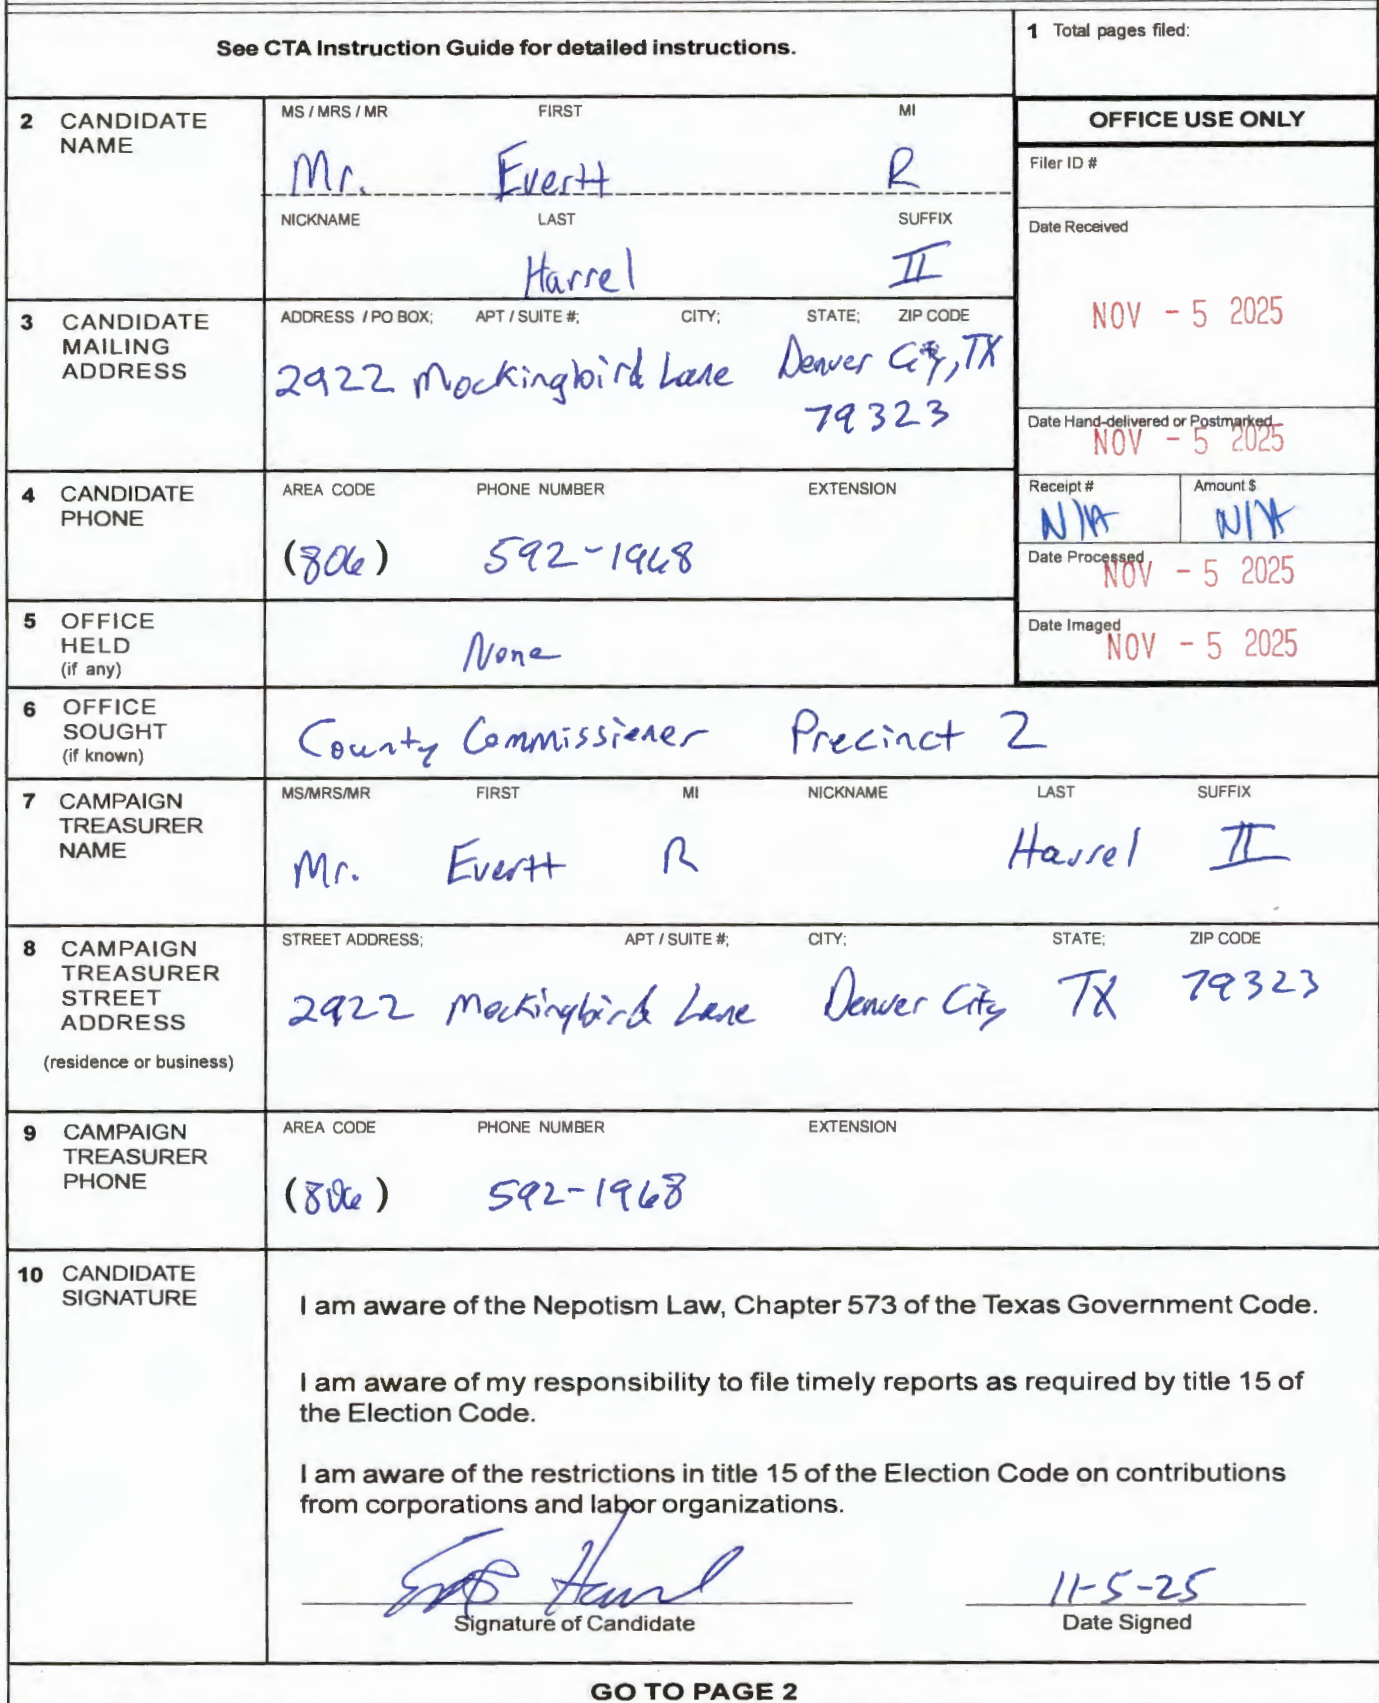 See CTA Instruction Guide for detailed instructions.
1 Total pages filed:
2 CANDIDATE NAME
MS / MRS / MR FIRST MI
Mr. Evertt R
NICKNAME LAST SUFFIX
Harrel II
OFFICE USE ONLY
Filer ID #
Date Received
NOV - 5 2025
Date Hand-delivered or Postmarked
NOV - 5 2025
Receipt # Amount $
N/A N/A
Date Processed
NOV - 5 2025
Date Imaged
NOV - 5 2025
3 CANDIDATE MAILING ADDRESS
ADDRESS / PO BOX; APT / SUITE #; CITY; STATE; ZIP CODE
2922 Mockingbird Lane Denver City, TX
79323
4 CANDIDATE PHONE
AREA CODE PHONE NUMBER EXTENSION
(806) 592-1968
5 OFFICE HELD (if any)
None
6 OFFICE SOUGHT (if known)
County Commissioner Precinct 2
7 CAMPAIGN TREASURER NAME
MS/MRS/MR FIRST MI NICKNAME LAST SUFFIX
Mr. Evertt R Harrel II
8 CAMPAIGN TREASURER STREET ADDRESS
(residence or business)
STREET ADDRESS; APT / SUITE #; CITY; STATE; ZIP CODE
2922 Mockingbird Lane Denver City TX 79323
9 CAMPAIGN TREASURER PHONE
AREA CODE PHONE NUMBER EXTENSION
(806) 592-1968
10 CANDIDATE SIGNATURE
I am aware of the Nepotism Law, Chapter 573 of the Texas Government Code.
I am aware of my responsibility to file timely reports as required by title 15 of
the Election Code.
I am aware of the restrictions in title 15 of the Election Code on contributions
from corporations and labor organizations.
11-5-25
Signature of Candidate Date Signed
GO TO PAGE 2